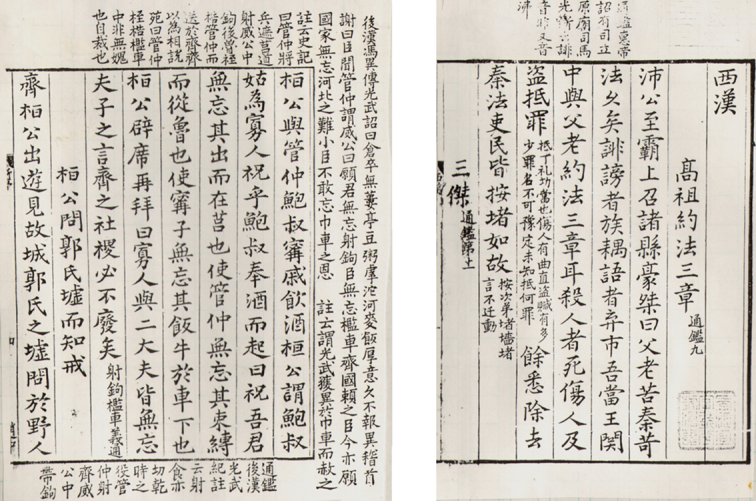 西漢
高祖約法三章 通鑑九
沛公至霸上召諸縣豪桀曰父老苦秦苛
法久矣誹謗者族耦語者弃市吾當王関
中與父老約法三章耳殺人者死傷人及
盗抵罪 抵丁礼功當也傷人有曲直盗贓有多
少罪名不可豫定未知抵何罪 餘悉除去
秦法吏民皆按堵如故 按次第堵墻堵
言不迁動
三傑 通鑑第十一
詔有司立
原廟司馬
者非又音
沸
後漢馮異傳光武詔曰倉卒無蔞亭豆粥虖沱河麥飯厚意久不報異稽首
謝曰臣聞管仲謂威公曰願君無忘射鉤臣無忘檻車齊國賴之臣今亦願
國家無忘河北之難小臣不敢忘巾車之恩 註云謂光武獲異於巾車而赦之
註云史記
曰管仲將
兵遮莒道
射威公中
鉤後曾桎
梏管仲而
送於齊齊
以為相說
苑曰管仲
桎梏檻車
中非無媿
也自裁也
桓公與管仲鮑叔甯戚飲酒桓公謂鮑叔
姑為寡人祝乎鮑叔奉酒而起曰祝吾君
無忘其出而在莒也使管仲無忘其束縛
而從魯也使甯子無忘其飯牛於車下也
桓公辟席再拜曰寡人與二大夫皆無忘
夫子之言齊之社稷必不廢矣 射鉤檻車義通
桓公問郭氏墟而知戒
齊桓公出遊見故城郭氏之墟問於野人
通鑑
後漢
光武
紀註
云射
食亦
切乾
時之
役管
仲射
齊威
公中
帶鉤